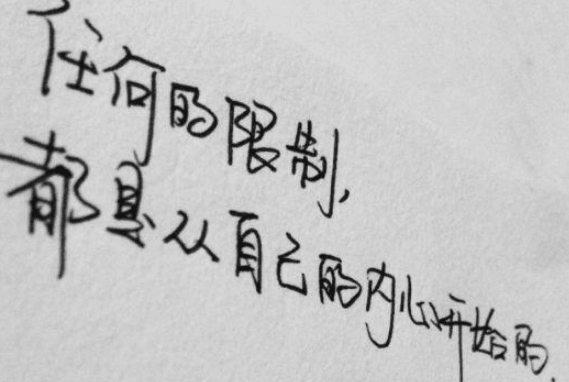 任何的限制，
都是从自己的内心开始的.